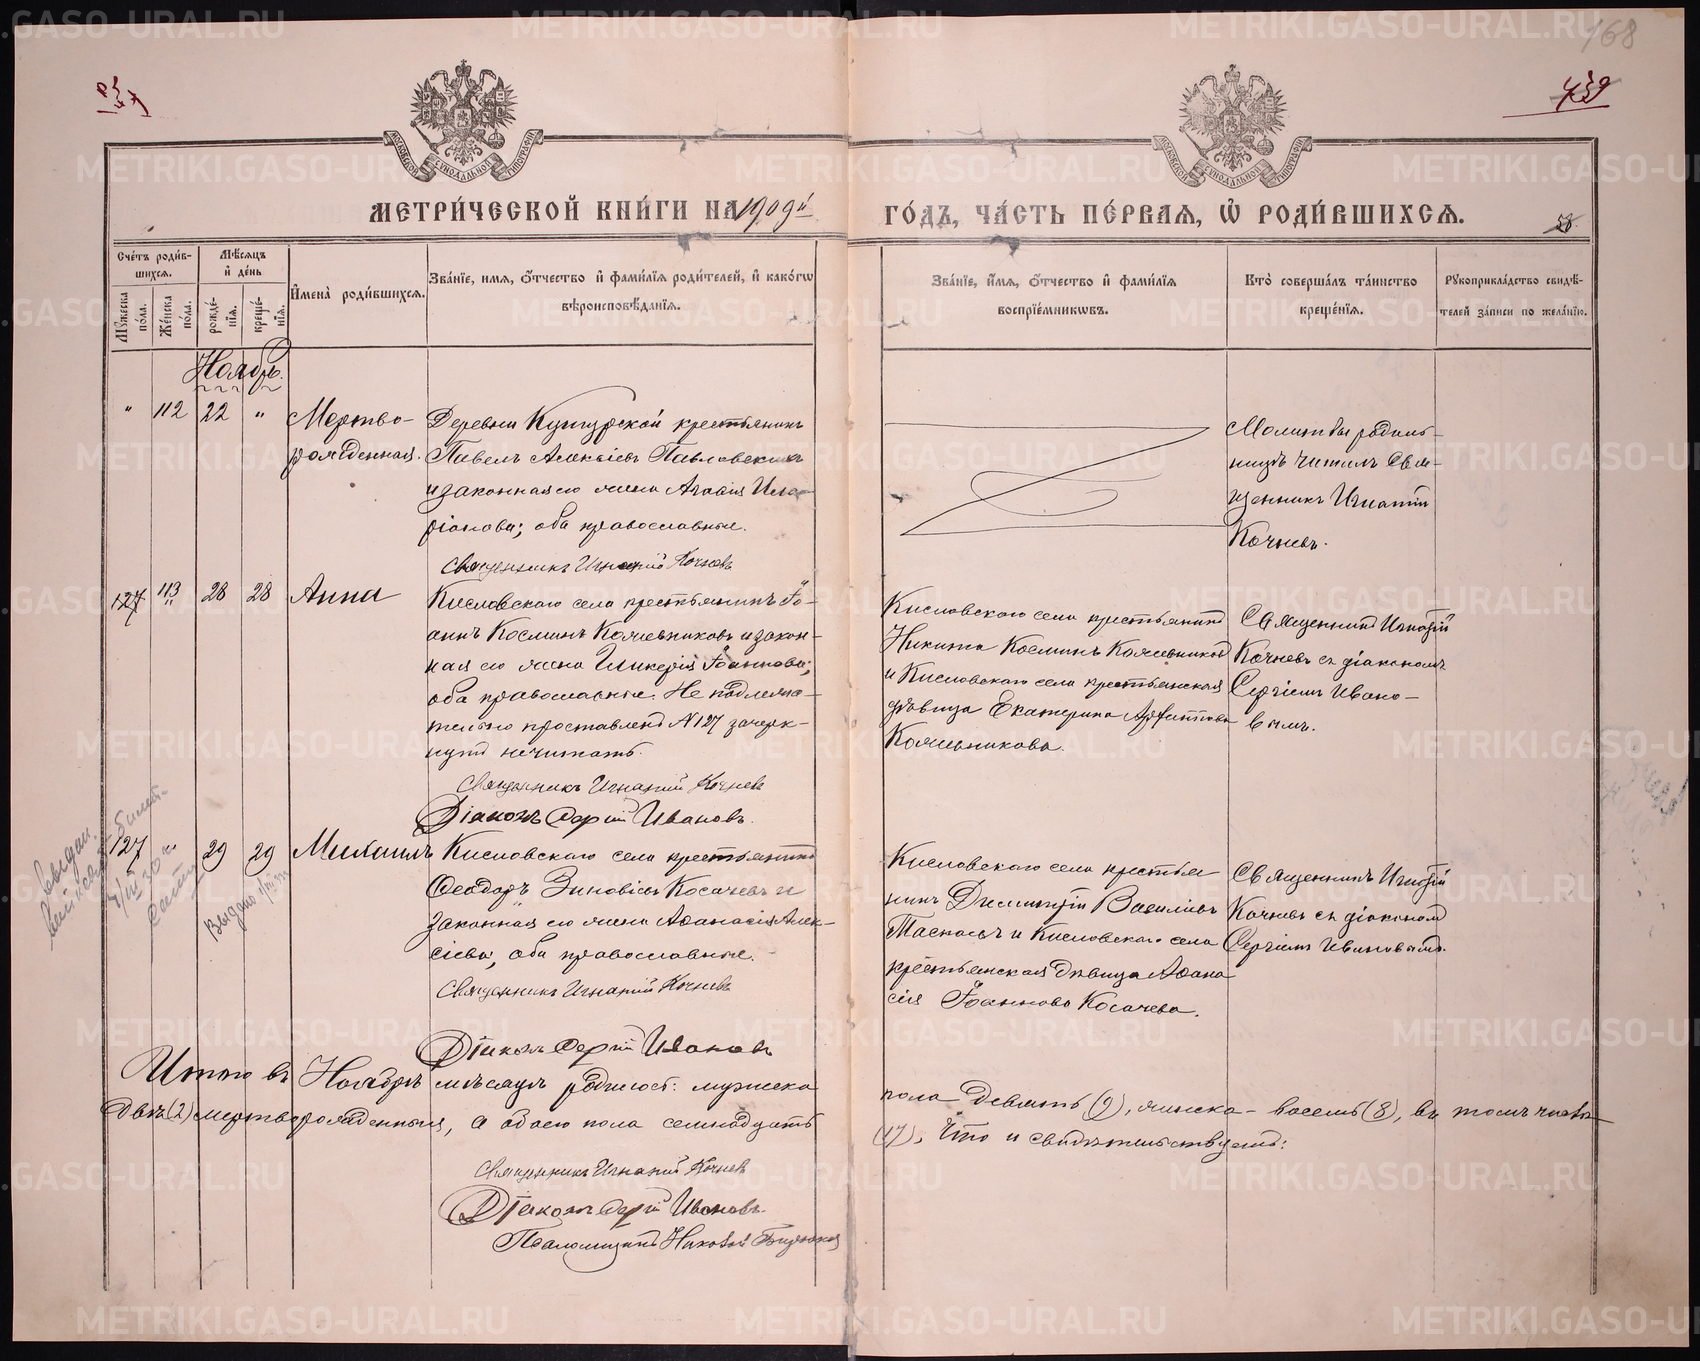 168
439
МЕТРИ́ЧЕСКОЙ КНИ́ГИ НА 1909й ГО́ДЪ, ЧА́СТЬ ПЕ́РВАЯ, Ѡ РОДИ́ВШИХСЯ.
58
МОСКОВСКОЙ СѴНОДАЛЬНОЙ ТИПОГРАФІИ
МОСКОВСКОЙ СѴНОДАЛЬНОЙ ТИПОГРАФІИ
Сче́тъ роди́вшихся.
Мѣ́сяцъ и де́нь
Имена̀ роди́вшихся.
Зва́нїе, имя, о́тчество и фами́лїя роди́телей, и како́гѡ
вѣроисповѣ́данїя.
Му́жеска по́ла.
Же́нска по́ла.
рожде́нїя.
креще́нїя.
Зва́нїе, и́мя, о́тчество и фами́лїя
воспрїе́мникѡвъ.
Кто̀ соверша́лъ та́инство
креще́нїя.
Рукоприкла́дство свидѣ́-
телей за́писи по жела́нїю.
Ноябрь.
" 112 22 "
Мертво-
рожденная.
Деревни Кутурской крестьянинъ
Павелъ Алексіевъ Павловскихъ
и законная его жена Агафія Ила-
ріонова; оба православные.
Священникъ Игнатій Кочневъ
Молитвы родиль-
ницѣ читалъ Свя-
щенникъ Игнатій
Кочневъ.
127 113 28 28
Анна
Кисловскаго села крестьянинъ Іо-
аннъ Косминъ Кожевниковъ и закон-
ная его жена Гликерія Іоаннова;
оба православные. Не подлежа-
тельно проставленъ №127 зачерк-
нутъ нечитать.
Священникъ Игнатій Кочневъ
Діаконъ Сергій Ивановъ.
Кисловскаго села крестьянинъ
Никита Косминъ Кожевниковъ
и Кисловскаго села крестьянская
дѣвица Екатерина
Кожевникова.
Священникъ Игнатій
Кочневъ съ діакономъ
Сергіемъ Ивано-
вымъ.
127 " 29 29
Михаилъ
Кисловскаго села крестьянинъ
Феодоръ Зиновіевъ Косачевъ и
законная его жена Афанасія Алек-
сіева, оба православные.
Священникъ Игнатій Кочневъ
Діаконъ Сергій Ивановъ
Кисловскаго села крестья
нинъ Димитрій Василіевъ
Таскаевъ и Кисловскаго села
крестьянская дѣвица Афана
сія Іоаннова Косачева.
Священникъ Игнатій
Кочневъ съ діакономъ
Сергіемъ Ивановымъ.
Итого въ Ноябрѣ мѣсяцѣ родилось: мужеска пола девять (9), женска - восемь (8), въ томъ числѣ
двѣ (2) мертворожденныя, а обоего пола семнадцать (17), Что и свидѣтельствуемъ:
Священникъ Игнатій Кочневъ
Діаконъ Сергій Ивановъ.
Псаломщикъ Николай
METRIKI.GASO-URAL.RU